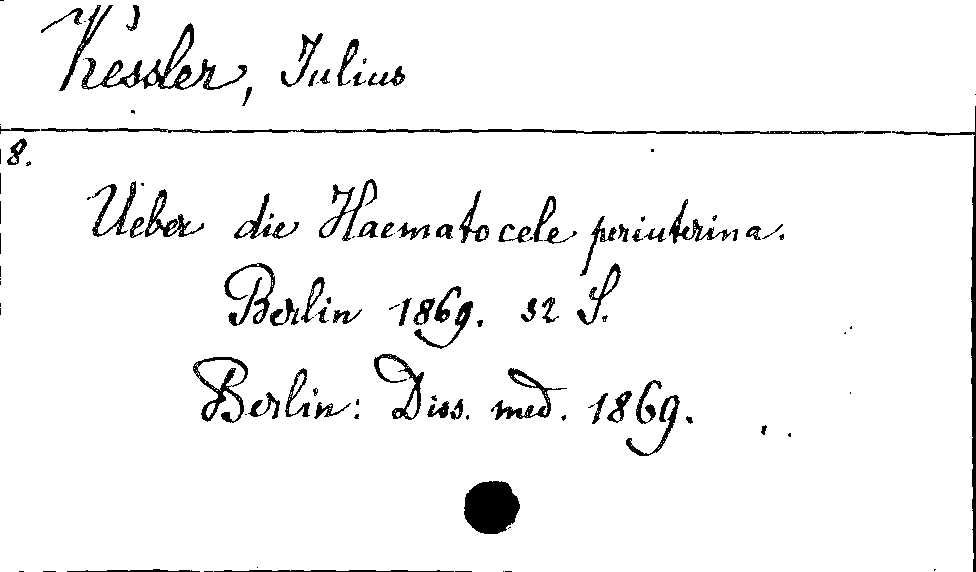 Kessler, Julius
8.
Ueber die Haematocele periuterina.
Berlin 1869. 32 S.
Berlin: Diss. med. 1869.